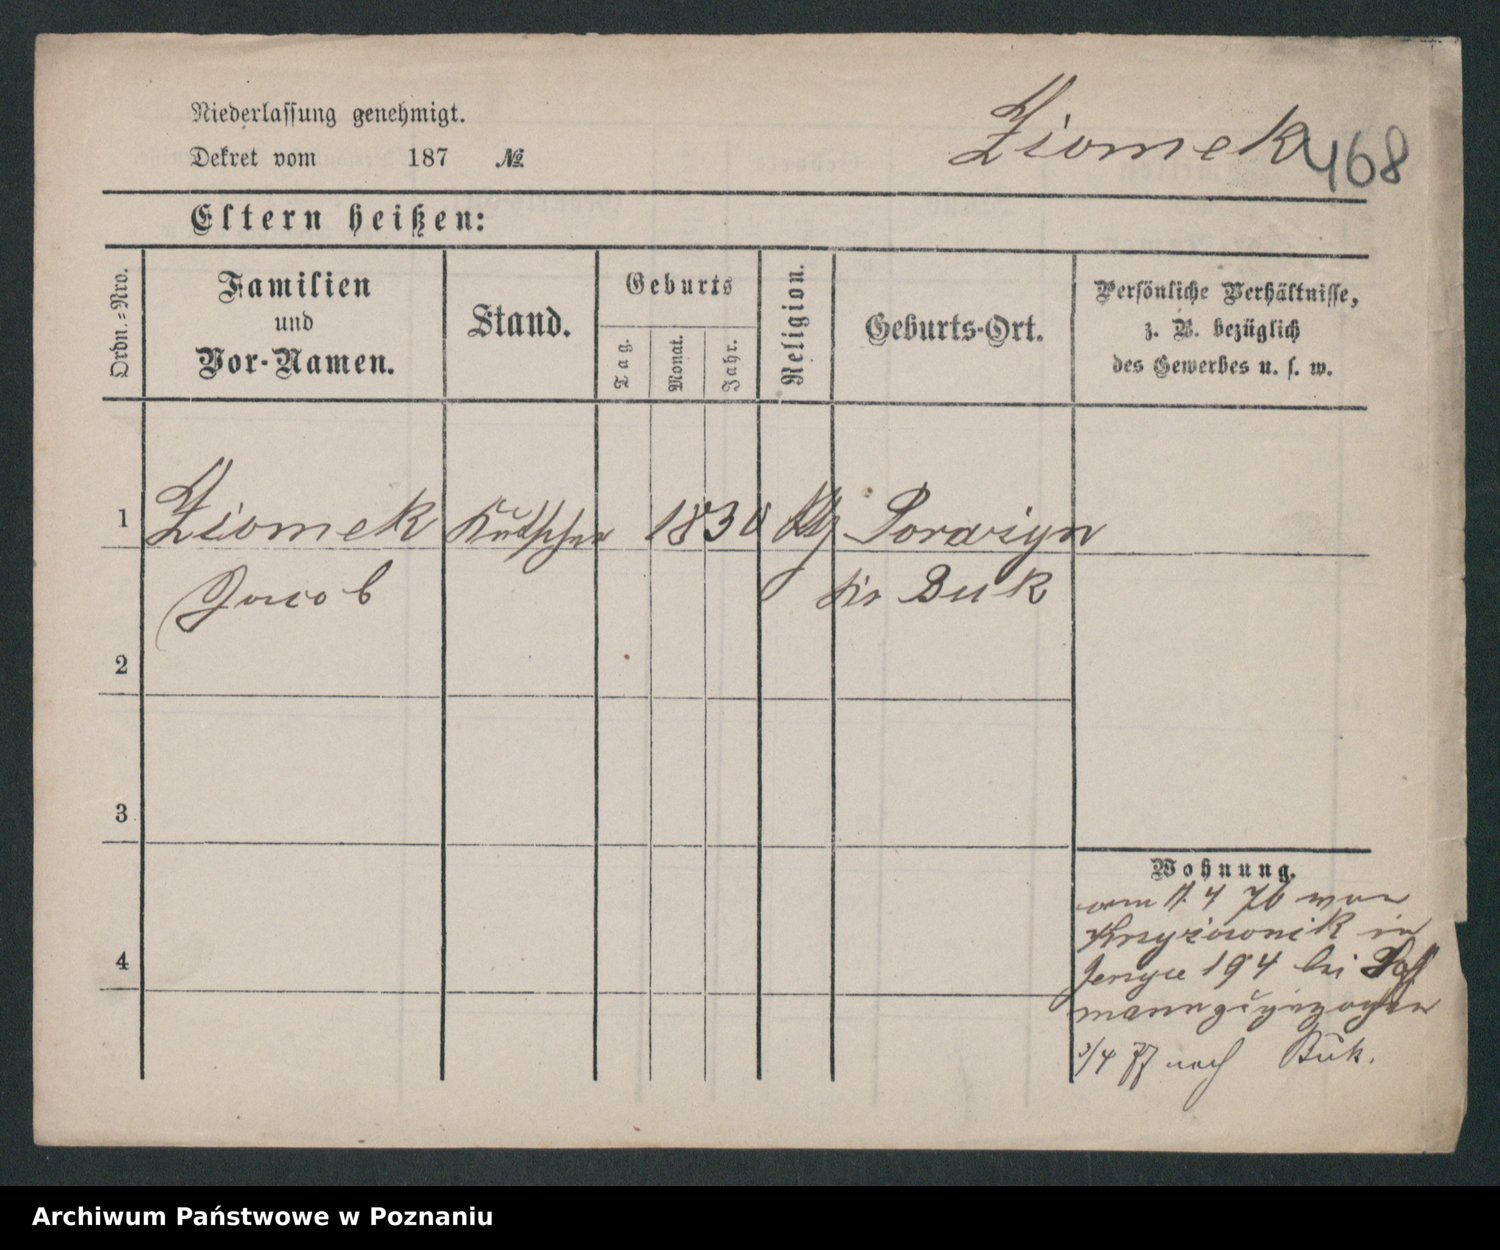 Niederlassung genehmigt.
Dekret vom 187 №
Ziomek 468
Eltern heißen:
Ordn.=Nro.
Familien
und
Vor-Namen.
Stand.
Geburts
Tag.
Monat.
Jahr.
Religion.
Geburts-Ort.
Persönliche Verhältnisse,
z. B. bezüglich
des Gewerbes u. s. w.
1 Ziomek Kutscher 1830 Porażyn
Jacob Kr Buk
2
3
4
Wohnung.
vom 11. 4 76 von
in
194 bei
mann zugezogen
3/4 77 nach Buk.
Archiwum Państwowe w Poznaniu